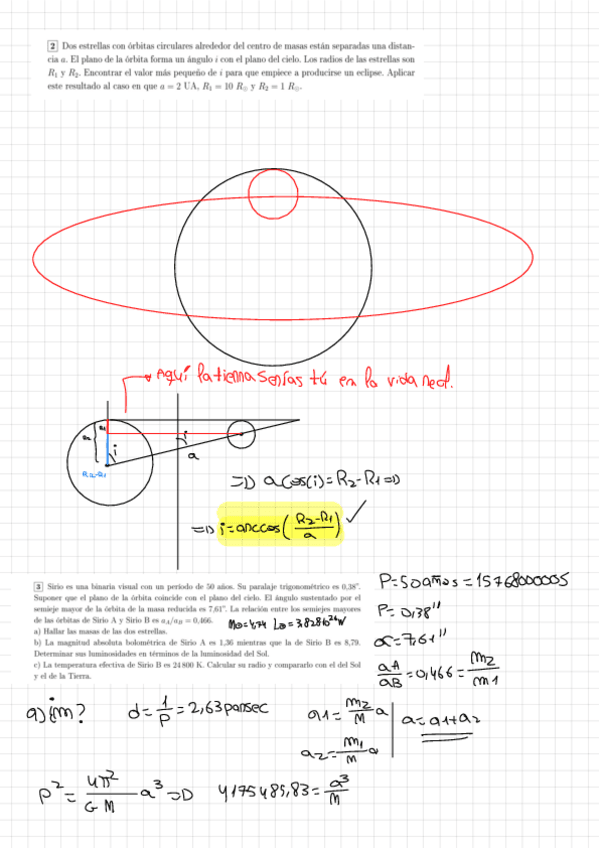 2 Dos estrellas con órbitas circulares alrededor del centro de masas están separadas una distan-
cia a. El plano de la órbita forma un ángulo i con el plano del cielo. Los radios de las estrellas son
R₁ y R₂. Encontrar el valor más pequeño de i para que empiece a producirse un eclipse. Aplicar
este resultado al caso en que a = 2 UA, R₁ = 10 R⊙ y R₂ = 1 R⊙.
Aquí la tierra serías tú en la vida real.
i
i
a
R2-R1
=D a cos(i) = R2-R1 =D
=D i = arccos(R2-R1/a) ✓
3 Sirio es una binaria visual con un periodo de 50 años. Su paralaje trigonométrico es 0,38".
Suponer que el plano de la órbita coincide con el plano del cielo. El ángulo sustentado por el
semieje mayor de la órbita de la masa reducida es 7,61". La relación entre los semiejes mayores
de las órbitas de Sirio A y Sirio B es a_A/a_B = 0,466.
a) Hallar las masas de las dos estrellas.
b) La magnitud absoluta bolométrica de Sirio A es 1,36 mientras que la de Sirio B es 8,79.
Determinar sus luminosidades en términos de la luminosidad del Sol.
c) La temperatura efectiva de Sirio B es 24 800 K. Calcular su radio y compararlo con el del Sol
y el de la Tierra.
P=50años=1576800000s
P=0,38"
α=7,61"
aA/aB=0,466=m2/m1
a) ¿m?
d=1/P=2,63parsec
a1=m2/M a
a2=m1/M a
a=a1+a2
P²=4π²/GM a³ =D 4175485,83=a³/M